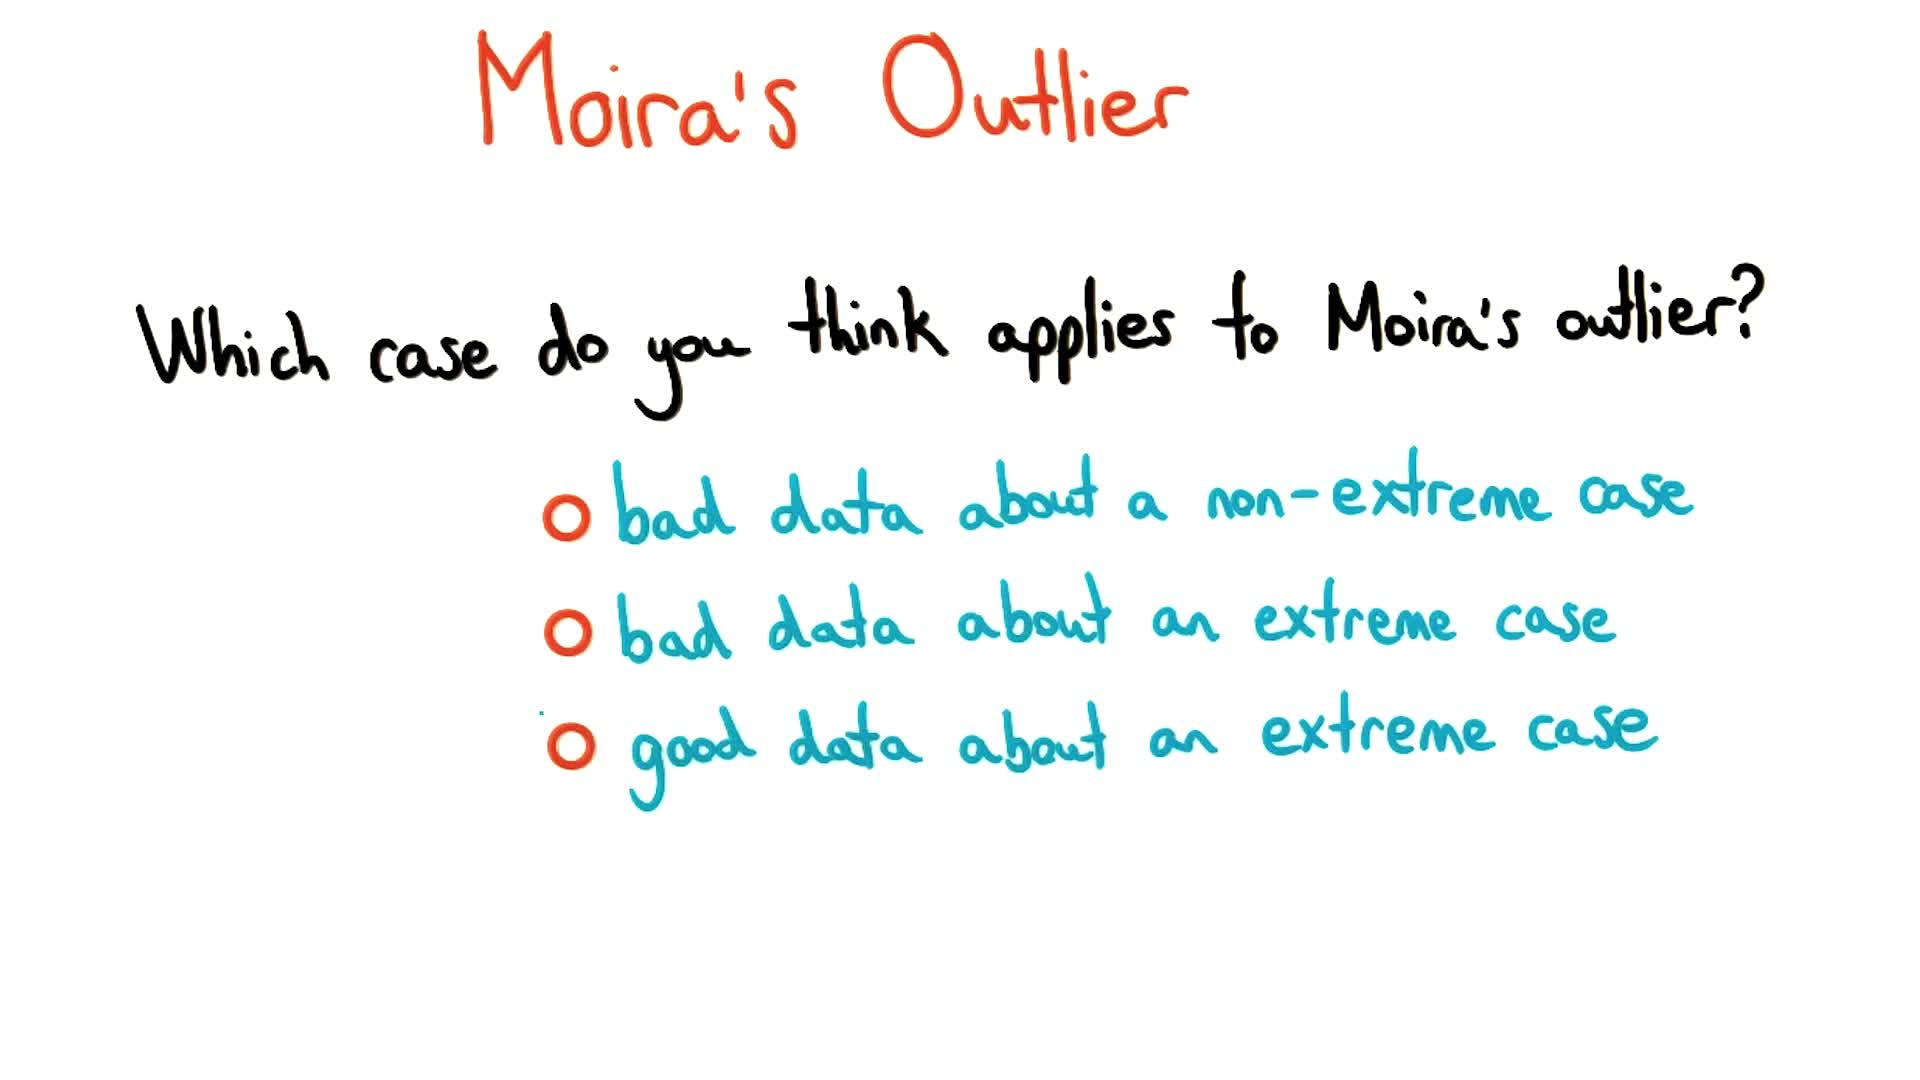 Moira's Outlier
Which case do you think applies to Moira's outlier?
bad data about a non-extreme case
bad data about an extreme case
good data about an extreme case